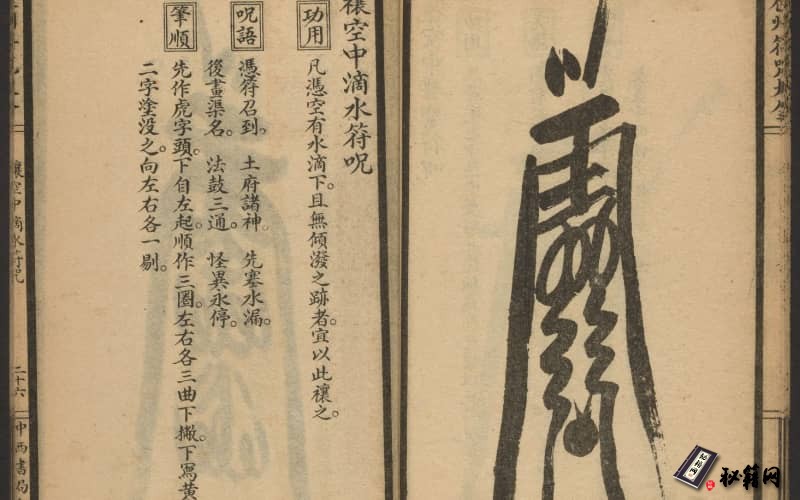 禳空中滴水符呪
功用
凡憑空有水滴下。且無傾潑之跡者。宜以此禳之。
呪語
憑符召到。 土府諸神。 先塞水漏。
後畫渠名。 法鼓三通。 怪異永停。
筆順
先作虎字頭。下自左起順作三圈。左右各三曲下撇。下寫黃
二字塗没之。向左右各一剔。
禳空中滴水符呪
二十六
中西書局
秘籍网
秘籍网